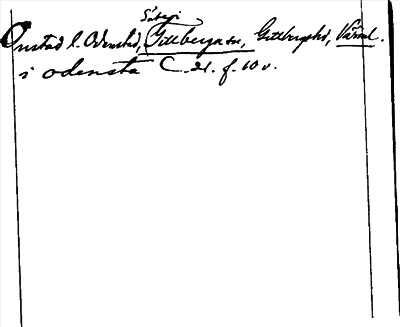 Säteri
Onstad l. Odenstad, Gillberga sn, Gillbergshd, Värml.
i odensta C. 21. f. 10 v.